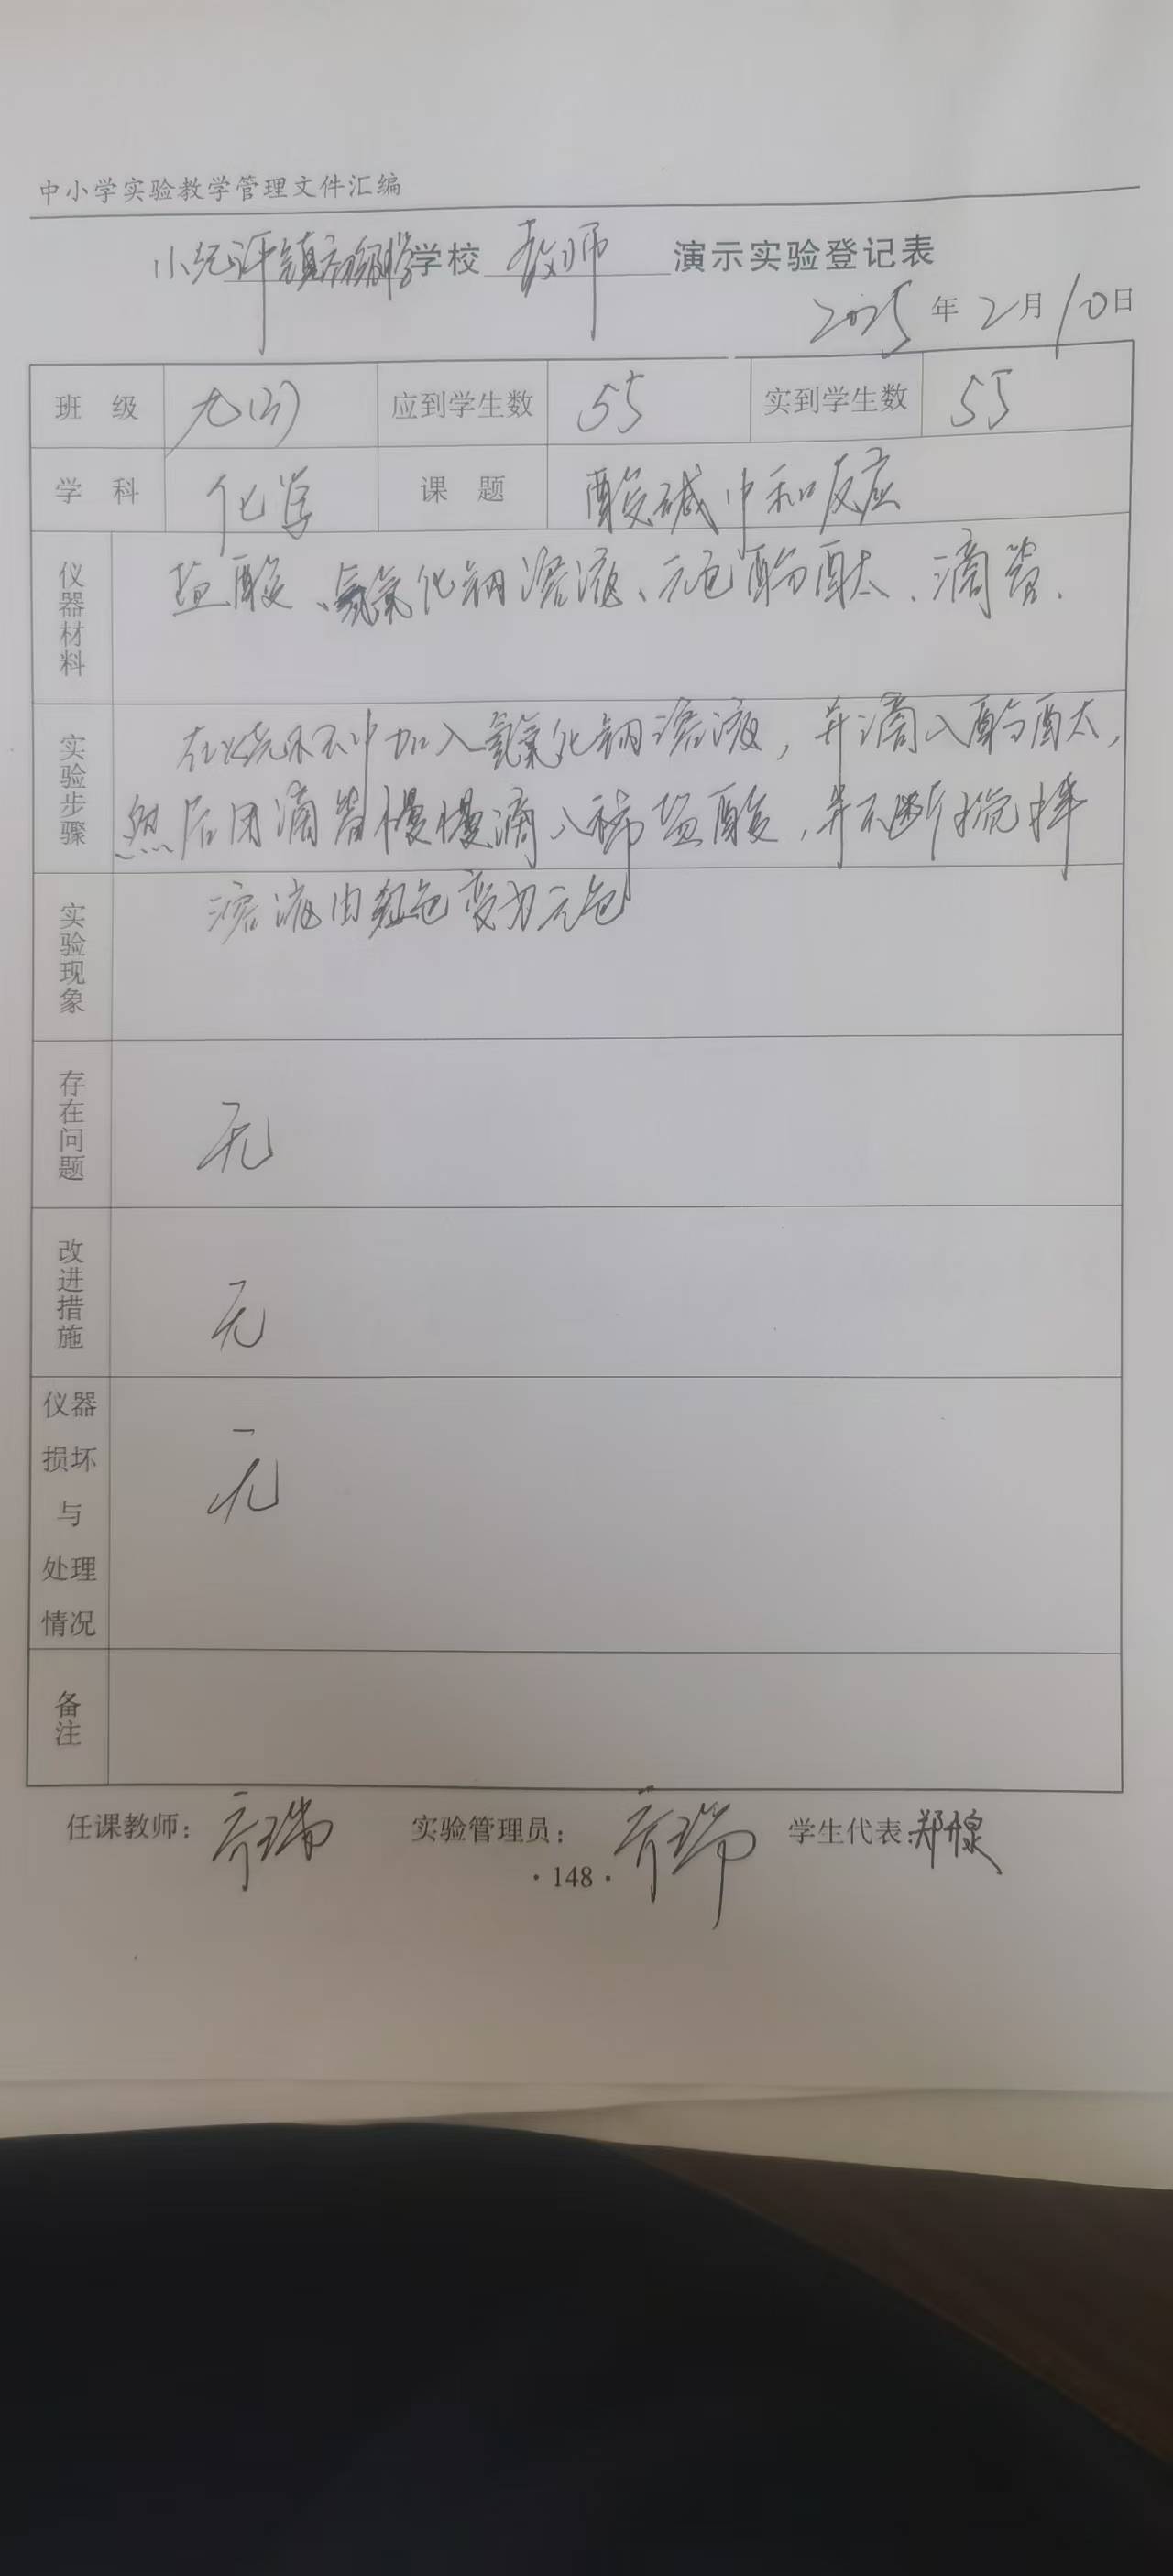 中小学实验教学管理文件汇编
小纪汗镇初级中学学校 教师 演示实验登记表
2025年2月10日
班级 九(3) 应到学生数 55 实到学生数 55
学科 化学 课题 酸碱中和反应
仪器材料 盐酸、氢氧化钠溶液、无色酚酞、滴管.
实验步骤 在烧杯中加入氢氧化钠溶液,并滴入酚酞,
然后用滴管慢慢滴入稀盐酸,并不断搅拌
实验现象 溶液由红色变为无色
存在问题 无
改进措施 无
仪器损坏与处理情况 无
备注
任课教师: 亓瑞 实验管理员: 亓瑞 学生代表:郑
·148·